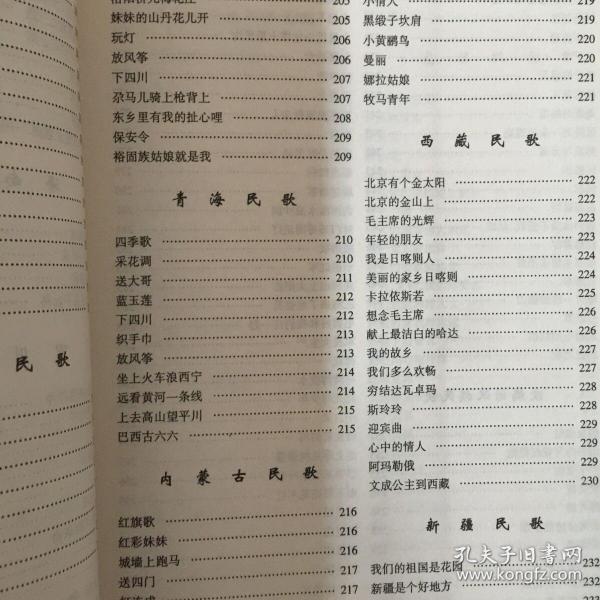 205
妹妹的山丹花儿开 205
玩灯 206
放风筝 206
下四川 207
尕马儿骑上枪背上 207
东乡里有我的扯心哩 208
保安令 209
裕固族姑娘就是我 209
青海民歌
四季歌 210
采花调 210
送大哥 211
蓝玉莲 212
下四川 212
织手巾 213
放风筝 213
坐上火车浪西宁 214
远看黄河一条线 214
上去高山望平川 215
巴西古六六 215
内蒙古民歌
红旗歌 216
红彩妹妹 216
城墙上跑马 216
送四门 217
217
小情人 219
黑缎子坎肩 219
小黄鹂鸟 220
曼丽 220
娜拉姑娘 221
牧马青年 221
西藏民歌
北京有个金太阳 222
北京的金山上 222
毛主席的光辉 223
年轻的朋友 223
我是日喀则人 224
美丽的家乡日喀则 224
卡拉依斯若 225
想念毛主席 226
献上最洁白的哈达 226
我的故乡 227
我们多么欢畅 227
穷结达瓦卓玛 228
斯玲玲 228
迎宾曲 229
心中的情人 229
阿玛勒俄 229
文成公主到西藏 230
新疆民歌
我们的祖国是花园 232
新疆是个好地方 232
223
民歌
孔夫子旧书网
www.kongfz.com